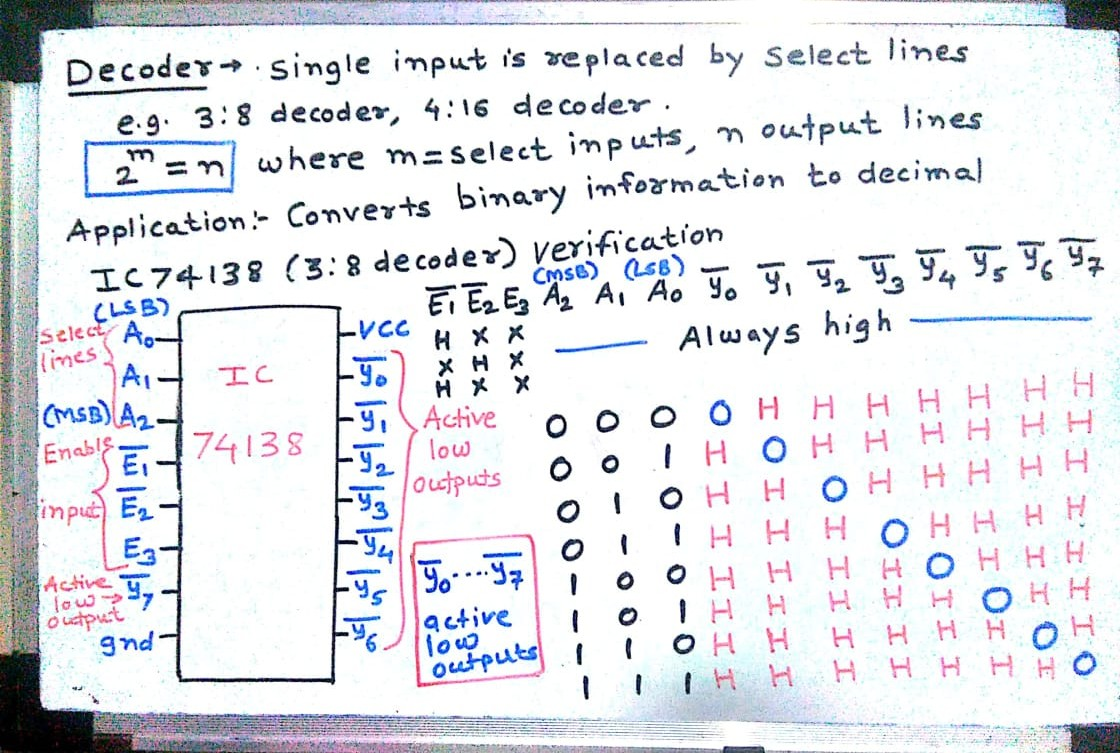 Decoder → . Single input is replaced by Select lines
e.g. 3:8 decoder, 4:16 decoder .
2^m = n where m = select inputs, n output lines
Application:- Converts binary information to decimal
IC74138 (3:8 decoder) verification
(LSB)
Select lines
A₀
A₁
(MSB) A₂
Enable input
E̅₁
E̅₂
E₃
Active low → output
Y̅₇
gnd
IC
74138
VCC
Y̅₀
Y̅₁
Y̅₂
Y̅₃
Y̅₄
Y̅₅
Y̅₆
Active
low
outputs
Y̅₀....Y̅₇
active
low
outputs
(MSB) (LSB)
E̅₁ E̅₂ E₃ A₂ A₁ A₀ Y̅₀ Y̅₁ Y̅₂ Y̅₃ Y̅₄ Y̅₅ Y̅₆ Y̅₇
H X X
X H X
H X X
Always high
0 0 0 0 H H H H H H H
0 0 1 H 0 H H H H H H
0 1 0 H H 0 H H H H H
0 1 1 H H H 0 H H H H
1 0 0 H H H H 0 H H H
1 0 1 H H H H H 0 H H
1 1 0 H H H H H H 0 H
1 1 1 H H H H H H H 0